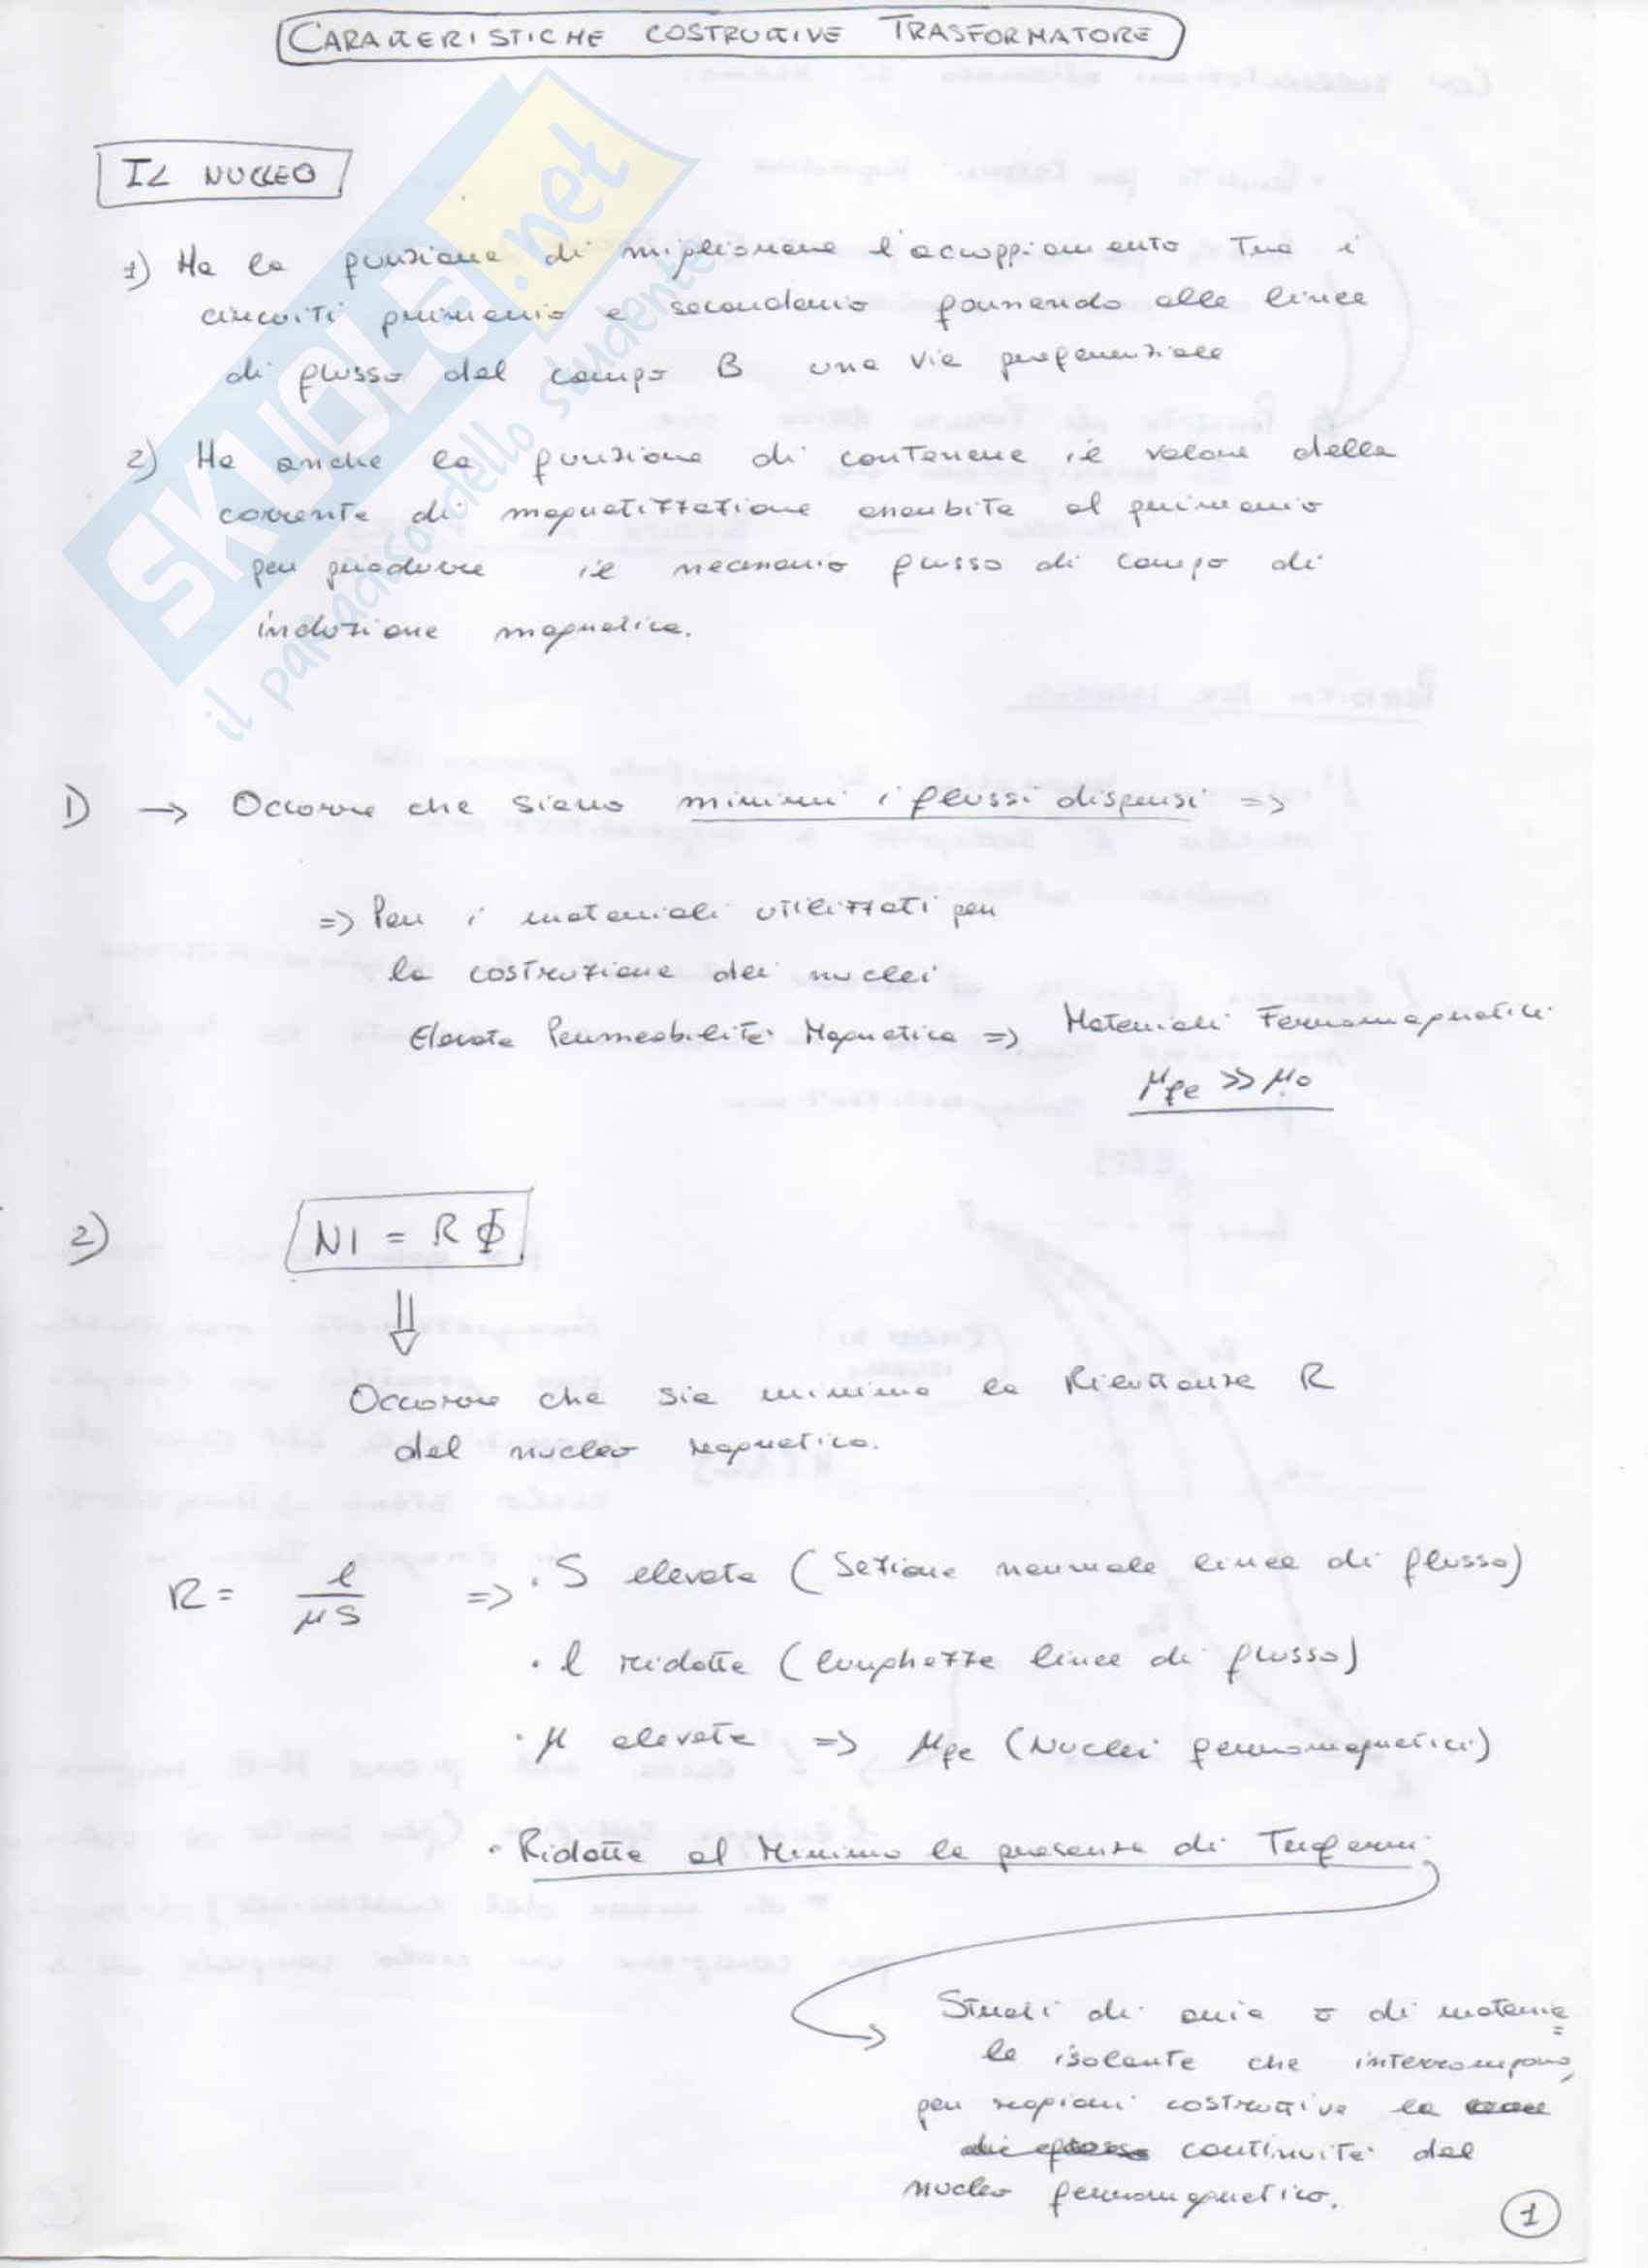 CARATTERISTICHE COSTRUTTIVE TRASFORMATORE
IL NUCLEO
1) Ha la funzione di migliorare l'accoppiamento tra i
circuiti primario e secondario fornendo alle linee
di flusso del campo B una via preferenziale
2) Ha anche la funzione di contenere il valore della
corrente di magnetizzazione assorbita al primario
per produrre il necessario flusso di campo di
induzione magnetica.
1) → Occorre che siano minimi i flussi dispersi =>
=> Per i materiali utilizzati per
la costruzione dei nuclei
Elevata Permeabilità Magnetica => Materiali Ferromagnetici
μfe >> μo
2) NI = R Φ
⇓
Occorre che sia minima la Riluttanza R
del nucleo magnetico.
R = l / μS => • S elevata (Sezione normale linee di flusso)
• l ridotta (lunghezza linee di flusso)
• μ elevata => μfe (Nuclei ferromagnetici)
• Ridotta al Minimo la presenza di Traferri
Strati di aria o di materia
le isolante che interrompono,
per ragioni costruttive la
continuità del
nucleo ferromagnetico.
1
SKUOLA.net
il paradiso dello studente